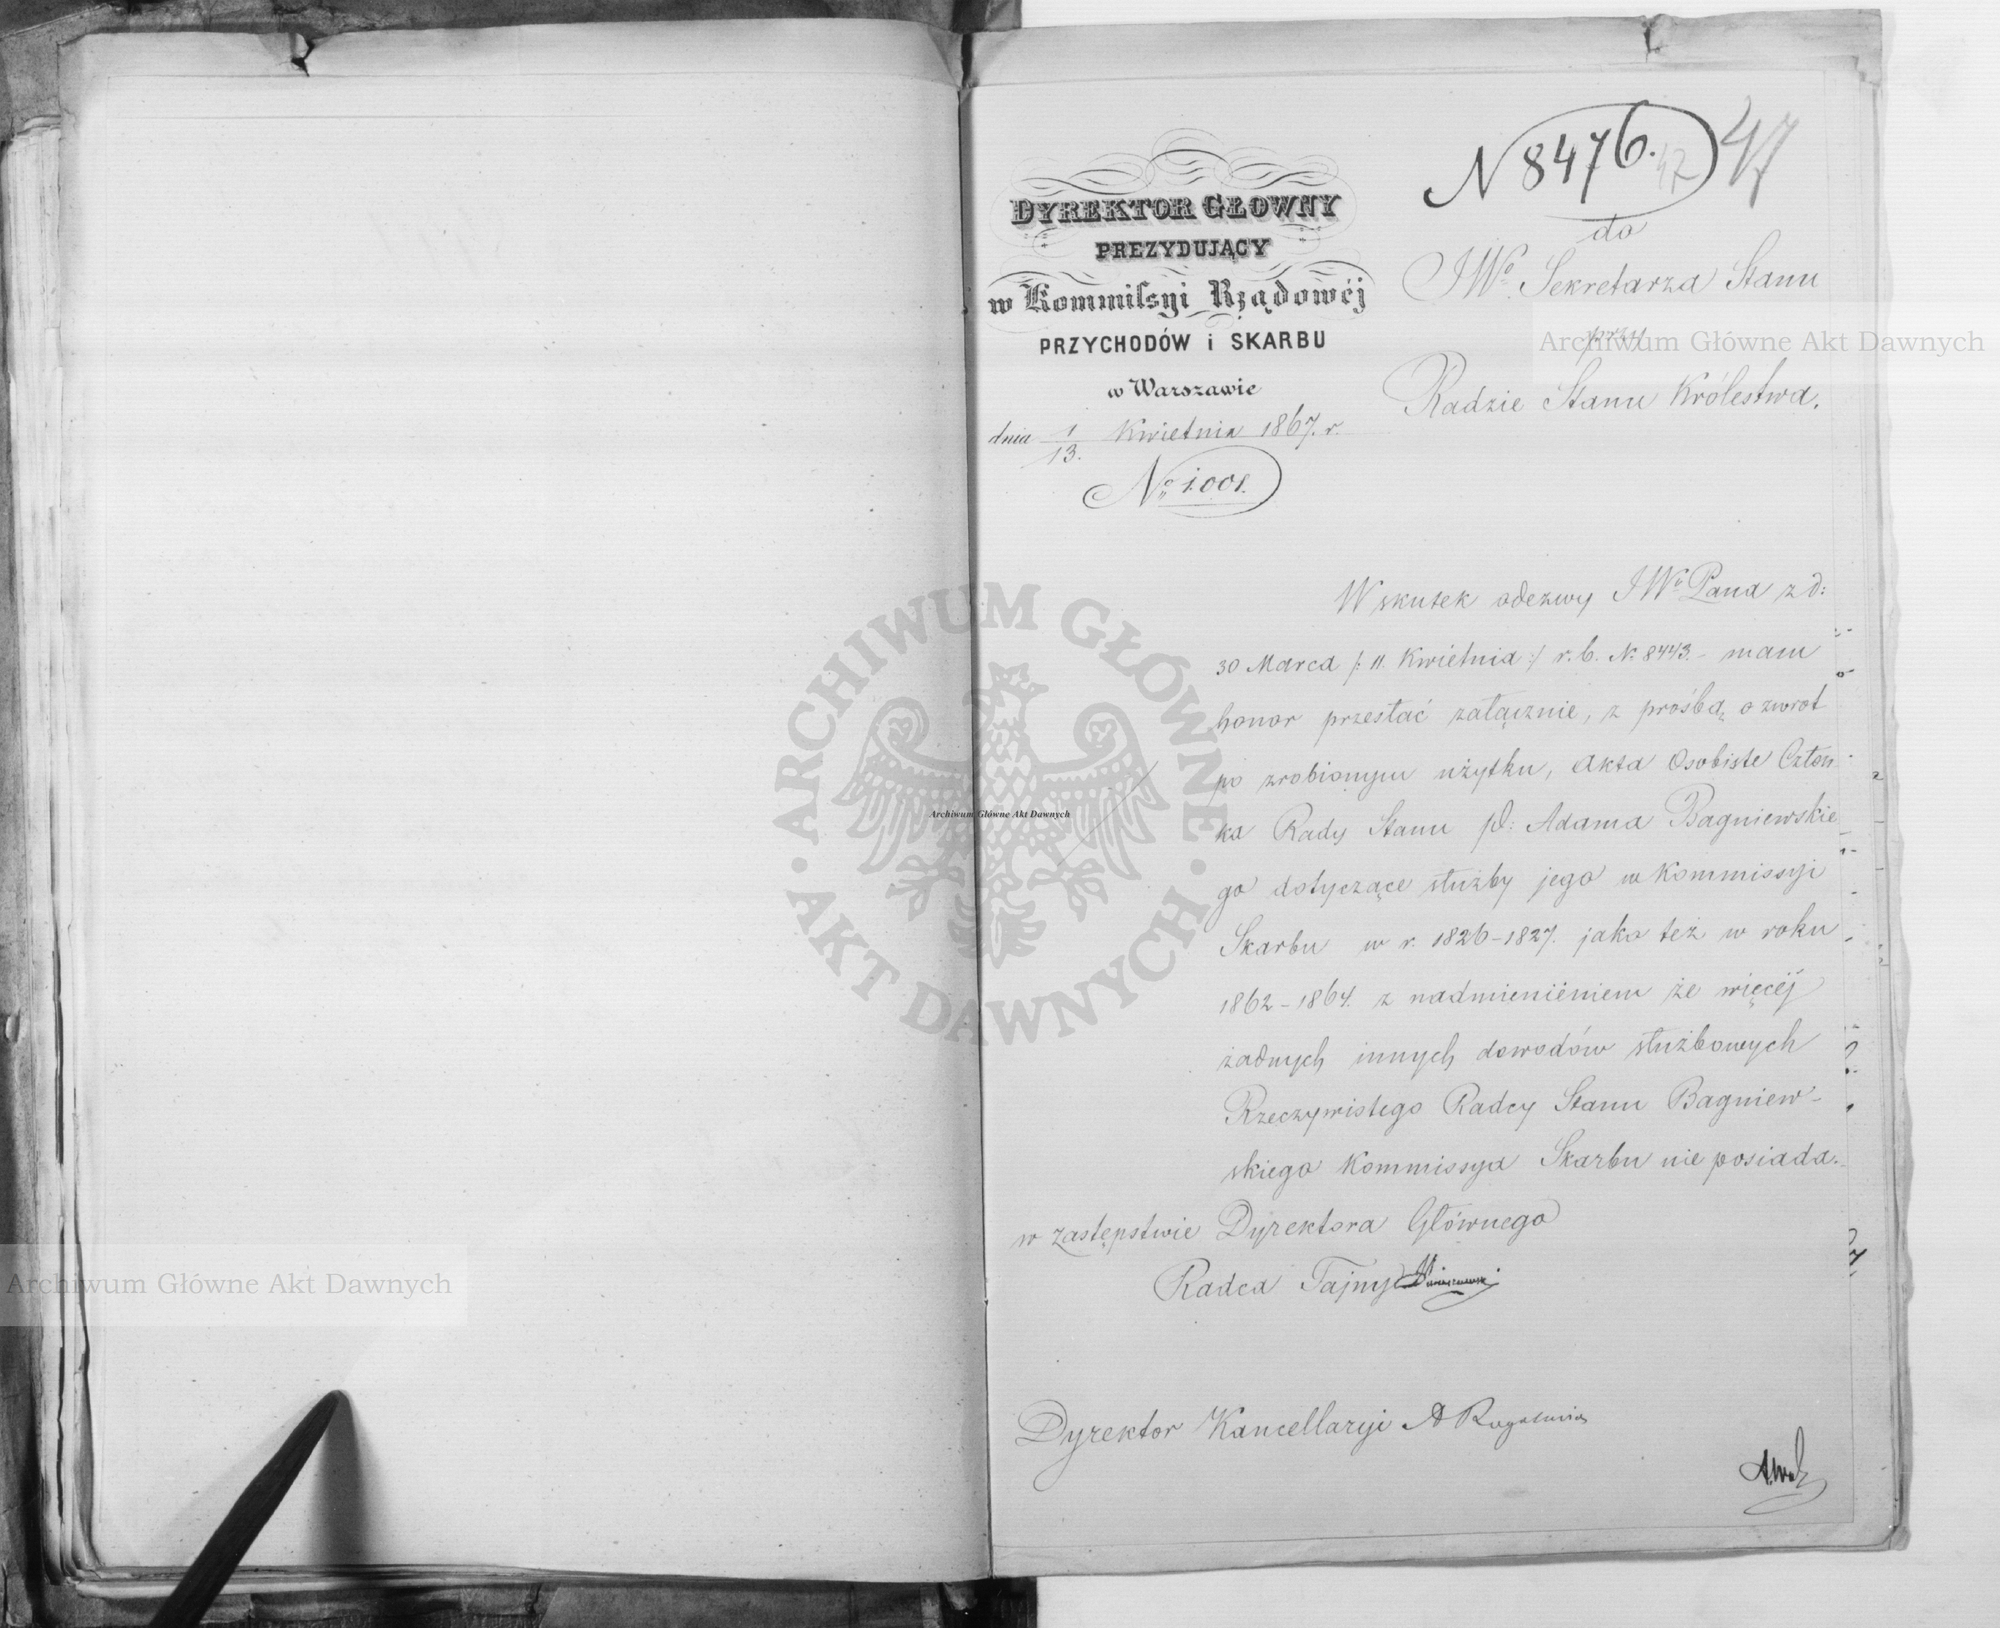 N 8476.
47
47
DYREKTOR GŁOWNY
PREZYDUJĄCY
w Kommissyi Rządowéj
PRZYCHODÓW i SKARBU
w Warszawie
dnia 1/13. Kwietnia 1867. r.
No 1001.
do
JWo Sekretarza Stanu
przy
Radzie Stanu Królestwa.
W skutek odezwy JWo Pana z d:
30 Marca /: 11. Kwietnia :/ r. b. N. 8443. – mam
honor przesłać załącznie, z prośbą o zwrot
po zrobionym użytku, Akta Osobiste Człon
ka Rady Stanu p: Adama Bagniewskie
go dotyczące służby jego w Kommissyi
Skarbu w r. 1826–1827. jako też w roku
1862–1864. z nadmienieniem że więcéj
żadnych innych dowodów służbowych
Rzeczywistego Radcy Stanu Bagniew-
skiego Kommissya Skarbu nie posiada.
w zastępstwie Dyrektora Głównego
Radca Tajny
Dyrektor Kancellaryi A
Archiwum Główne Akt Dawnych
Archiwum Główne Akt Dawnych
Archiwum Główne Akt Dawnych
ARCHIWUM GŁÓWNE · AKT DAWNYCH ·